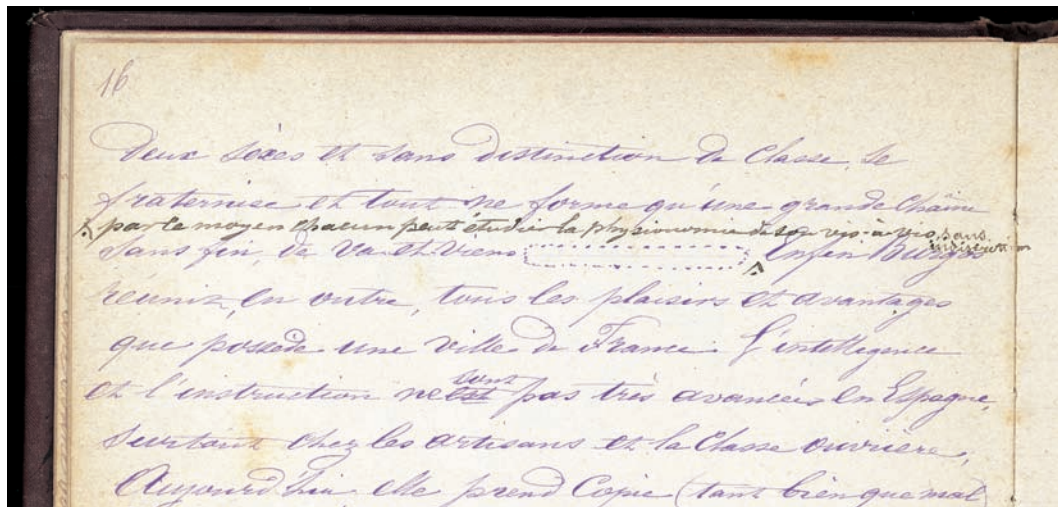 16
deux séxes et sans distinction de Classe, se
fraternise et tout ne forme qu'une grande Chaîne
par ce moyen chacun peut étudier la physionomie de son vis-à-vis, sans indiscrétion
sans fin, de va-et-viens Enfin Burgos
réuniz, en outre, tous les plaisirs et avantages
que possède une ville de France. L'intelligence
et l'instruction ne est sont pas très avancées en Espagne,
surtout chez les artisans et la Classe ouvrière.
Aujourd'hui elle prend Copie (tant bien que mal)